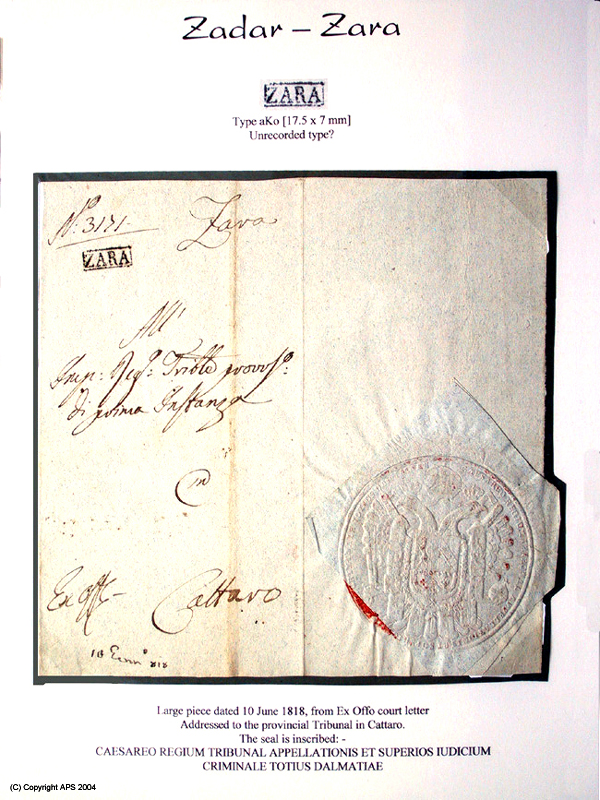 Zadar – Zara
ZARA
Type aKo [17.5 x 7 mm]
Unrecorded type?
No: 3171.
Zara
ZARA
All'
Imp: Reg:
di prima Instanza
in
Ex Offo
Cattaro
818
Large piece dated 10 June 1818, from Ex Offo court letter
Addressed to the provincial Tribunal in Cattaro.
The seal is inscribed: -
CAESAREO REGIUM TRIBUNAL APPELLATIONIS ET SUPERIOS IUDICIUM
CRIMINALE TOTIUS DALMATIAE
(C) Copyright APS 2004